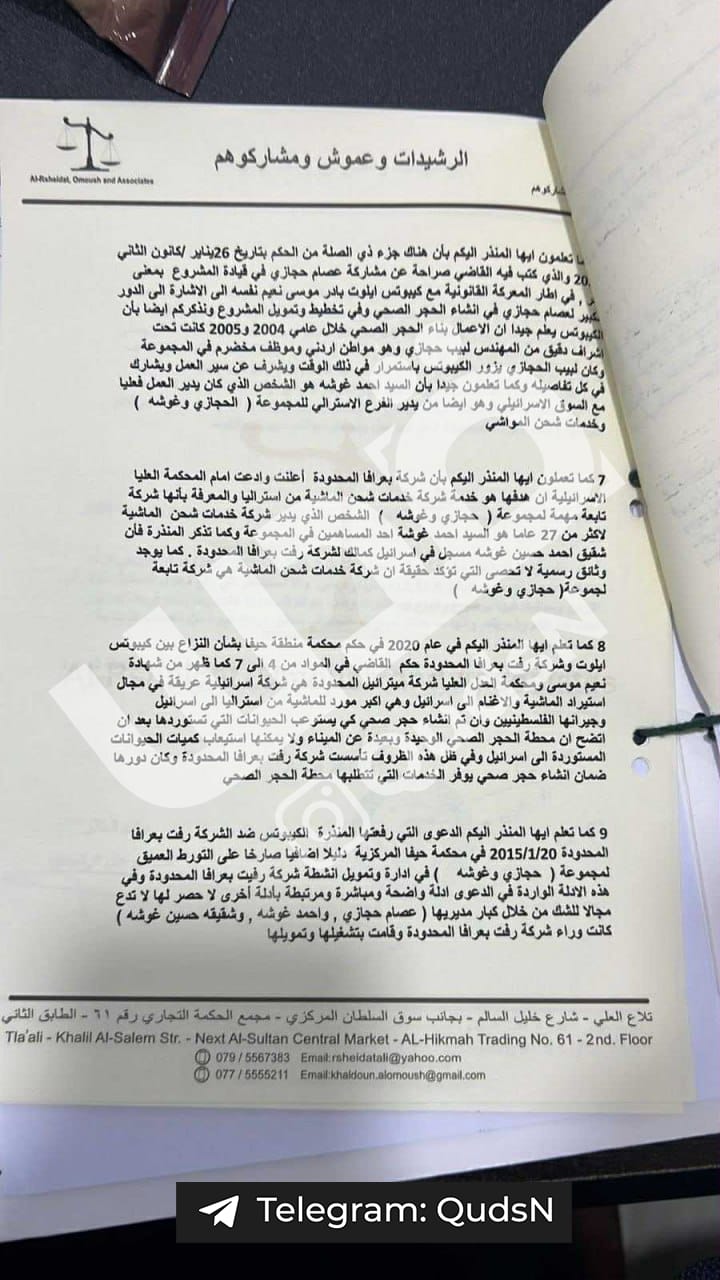 الرشيدات وعموش ومشاركوهم
Al-Rsheidat, Omoush and Associates
شاركوهم
تعلمون ايها المنذر اليكم بأن هناك جزء ذي الصلة من الحكم بتاريخ 26يناير /كانون الثاني
والذي كتب فيه القاضي صراحة عن مشاركة عصام حجازي في قيادة المشروع بمعنى
, في اطار المعركة القانونية مع كيبوتس ايلوت بادر موسى نعيم نفسه الى الاشارة الى الدور
لعصام حجازي في انشاء الحجر الصحي وفي تخطيط وتمويل المشروع ونذكركم ايضا بأن
الكيبوتس يعلم جيدا ان الاعمال بناء الحجر الصحي خلال عامي 2004 و2005 كانت تحت
اشراف دقيق من المهندس لبيب حجازي وهو مواطن اردني وموظف مخضرم في المجموعة
وكان لبيب الحجازي يزور الكيبوتس باستمرار في ذلك الوقت ويشرف عن سير العمل ويشارك
في كل تفاصيله وكما تعلمون جيدا بأن السيد احمد غوشه هو الشخص الذي كان يدير العمل فعليا
مع السوق الاسرائيلي وهو ايضا من يدير الفرع الاسترالي للمجموعة ( الحجازي وغوشه )
وخدمات شحن المواشي
7 كما تعملون ايها المنذر اليكم بأن شركة بعرافا المحدودة أعلنت وادعت امام المحكمة العليا
الاسرائيلية ان هدفها هو خدمة شركة خدمات شحن الماشية من استراليا والمعرفة بأنها شركة
تابعة مهمة لمجموعة ( حجازي وغوشه ) الشخص الذي يدير شركة خدمات شحن الماشية
لاكثر من 27 عاما هو السيد احمد غوشة احد المساهمين في المجموعة وكما تذكر المنذرة فأن
شقيق احمد حسين غوشه مسجل في اسرائيل كمالك لشركة رفت بعرافا المحدودة . كما يوجد
وثائق رسمية لا تحصى التي تؤكد حقيقة ان شركة خدمات شحن الماشية هي شركة تابعة
لجموعة( حجازي وغوشه )
8 كما تعلم ايها المنذر اليكم في عام 2020 في حكم محكمة منطقة حيفا بشأن النزاع بين كيبوتس
ايلوت وشركة رفت بعرافا المحدودة حكم القاضي في المواد من 4 الى 7 كما ظهر من شهادة
نعيم موسى ومحكمة العدل العليا شركة ميترائيل المحدودة هي شركة اسرائيلية عريقة في مجال
استيراد الماشية والاغنام الى اسرائيل وهي اكبر مورد للماشية من استراليا الى اسرائيل
وجيرانها الفلسطينيين وأن تم انشاء حجر صحي كي يستوعب الحيوانات التي تستوردها بعد ان
اتضح ان محطة الحجر الصحي الوحيدة وبعيدة عن الميناء ولا يمكنها استيعاب كميات الحيوانات
المستوردة الى اسرائيل وفي ظل هذه الظروف تأسست شركة رفت بعرافا المحدودة وكان دورها
ضمان انشاء حجر صحي يوفر الخدمات التي تتطلبها محطة الحجر الصحي
9 كما تعلم ايها المنذر اليكم الدعوى التي رفعتها المنذرة الكيبوتس ضد الشركة رفت بعرافا
المحدودة 2015/1/20 في محكمة حيفا المركزية دليلا اضافيا صارخا على التورط العميق
لمجموعة ( حجازي وغوشه ) في ادارة وتمويل انشطة شركة رفيت بعرافا المحدودة وفي
هذه الادلة الواردة في الدعوى ادلة واضحة ومباشرة ومرتبطة بأدلة أخرى لا حصر لها لا تدع
مجالا للشك من خلال كبار مديريها ( عصام حجازي , واحمد غوشه , وشقيقه حسين غوشه )
كانت وراء شركة رفت بعرافا المحدودة وقامت بتشغيلها وتمويلها
تلاع العلي - شارع خليل السالم - بجانب سوق السلطان المركزي - مجمع الحكمة التجاري رقم ٦١ - الطابق الثاني
Tla'ali - Khalil Al-Salem Str. - Next Al-Sultan Central Market - AL-Hikmah Trading No. 61 - 2nd. Floor
079 / 5567383 Email:rsheidatali@yahoo.com
077 / 5555211 Email:khaldoun.alomoush@gmail.com
Telegram: QudsN